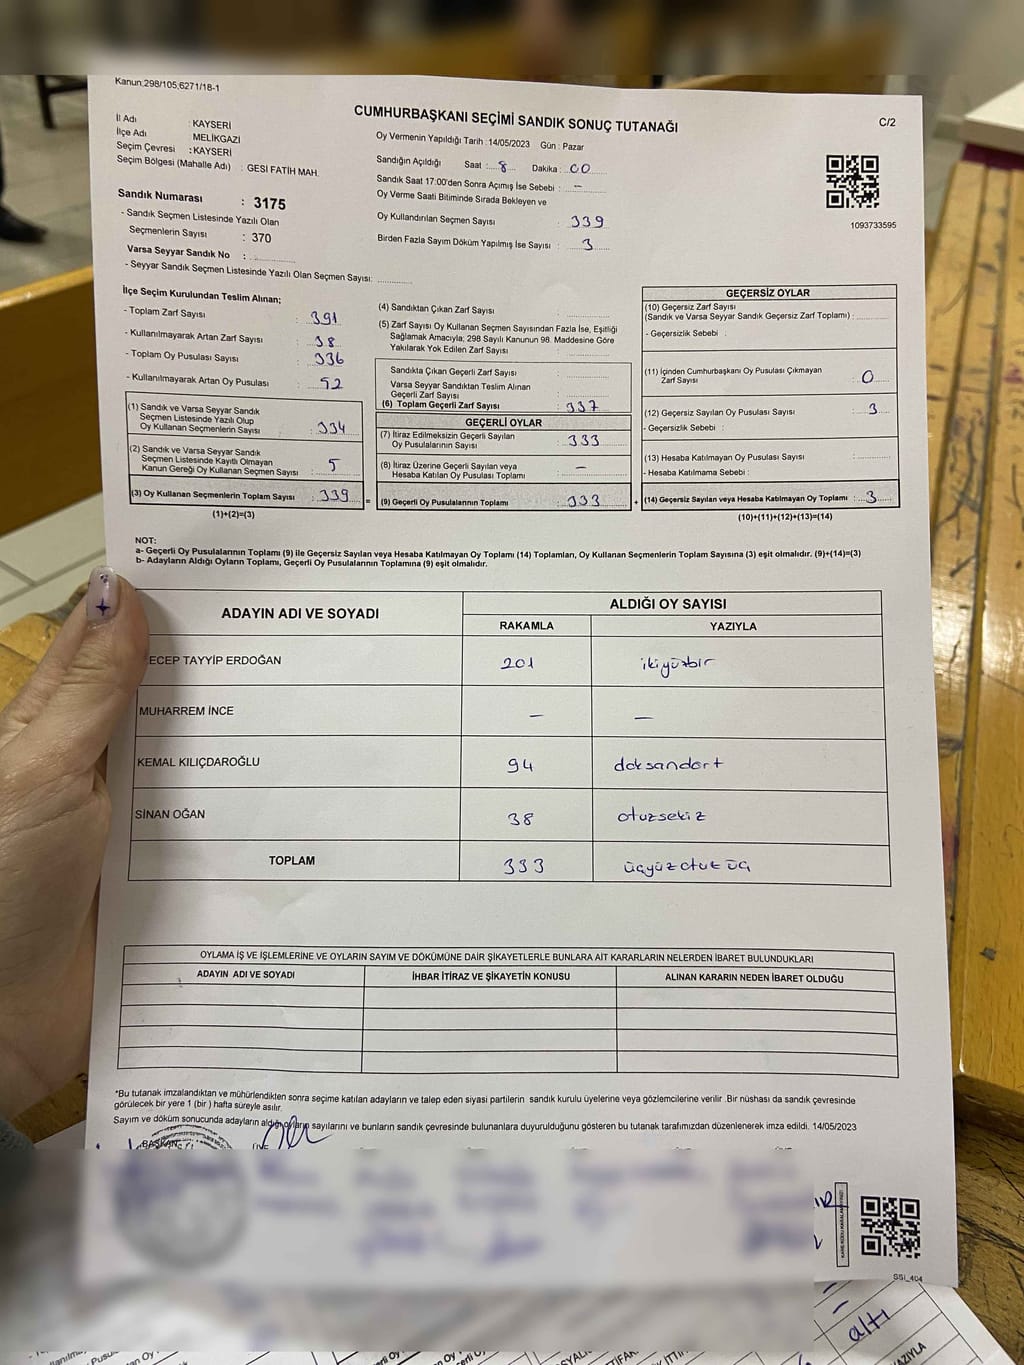 Kanun.298/105,6271/18-1
CUMHURBAŞKANI SEÇİMİ SANDIK SONUÇ TUTANAĞI
C/2
İl Adı : KAYSERİ
İlçe Adı : MELİKGAZİ
Seçim Çevresi : KAYSERİ
Seçim Bölgesi (Mahalle Adı) : GESI FATİH MAH.
Oy Vermenin Yapıldığı Tarih : 14/05/2023 Gün : Pazar
Sandığın Açıldığı Saat : 8 Dakika : 00
Sandık Saat 17:00'den Sonra Açımış İse Sebebi : –
Oy Verme Saati Bitiminde Sırada Bekleyen ve
Oy Kullandırılan Seçmen Sayısı : 339
Birden Fazla Sayım Döküm Yapılmış İse Sayısı : 3
1093733595
Sandık Numarası : 3175
- Sandık Seçmen Listesinde Yazılı Olan
Seçmenlerin Sayısı : 370
Varsa Seyyar Sandık No :
- Seyyar Sandık Seçmen Listesinde Yazılı Olan Seçmen Sayısı:
İlçe Seçim Kurulundan Teslim Alınan;
- Toplam Zarf Sayısı : 391
- Kullanılmayarak Artan Zarf Sayısı : 38
- Toplam Oy Pusulası Sayısı : 336
- Kullanılmayarak Artan Oy Pusulası : 52
(1) Sandık ve Varsa Seyyar Sandık
Seçmen Listesinde Yazılı Olup
Oy Kullanan Seçmenlerin Sayısı : 334
(2) Sandık ve Varsa Seyyar Sandık
Seçmen Listesinde Kayıtlı Olmayan
Kanun Gereği Oy Kullanan Seçmen Sayısı : 5
(3) Oy Kullanan Seçmenlerin Toplam Sayısı : 339 =
(1)+(2)=(3)
(4) Sandıktan Çıkan Zarf Sayısı :
(5) Zarf Sayısı Oy Kullanan Seçmen Sayısından Fazla İse, Eşitliği
Sağlamak Amacıyla; 298 Sayılı Kanunun 98. Maddesine Göre
Yakılarak Yok Edilen Zarf Sayısı :
Sandıkta Çıkan Geçerli Zarf Sayısı :
Varsa Seyyar Sandıktan Teslim Alınan
Geçerli Zarf Sayısı :
(6) Toplam Geçerli Zarf Sayısı : 337
GEÇERLİ OYLAR
(7) İtiraz Edilmeksizin Geçerli Sayılan
Oy Pusulalarının Sayısı : 333
(8) İtiraz Üzerine Geçerli Sayılan veya
Hesaba Katılan Oy Pusulası Toplamı : –
(9) Geçerli Oy Pusulalarının Toplamı : 333 +
GEÇERSİZ OYLAR
(10) Geçersiz Zarf Sayısı
(Sandık ve Varsa Seyyar Sandık Geçersiz Zarf Toplamı) :
- Geçersizlik Sebebi :
(11) İçinden Cumhurbaşkanı Oy Pusulası Çıkmayan
Zarf Sayısı : 0
(12) Geçersiz Sayılan Oy Pusulası Sayısı : 3
- Geçersizlik Sebebi :
(13) Hesaba Katılmayan Oy Pusulası Sayısı :
- Hesaba Katılmama Sebebi :
(14) Geçersiz Sayılan veya Hesaba Katılmayan Oy Toplamı : 3
(10)+(11)+(12)+(13)=(14)
NOT:
a- Geçerli Oy Pusulalarının Toplamı (9) ile Geçersiz Sayılan veya Hesaba Katılmayan Oy Toplamı (14) Toplamları, Oy Kullanan Seçmenlerin Toplam Sayısına (3) eşit olmalıdır. (9)+(14)=(3)
b- Adayların Aldığı Oyların Toplamı, Geçerli Oy Pusulalarının Toplamına (9) eşit olmalıdır.
ADAYIN ADI VE SOYADI
ALDIĞI OY SAYISI
RAKAMLA YAZIYLA
ECEP TAYYİP ERDOĞAN 201 ikiyüzbir
MUHARREM İNCE – –
KEMAL KILIÇDAROĞLU 94 doksandört
SİNAN OĞAN 38 otuzsekiz
TOPLAM 333 üçyüzotuz üç
OYLAMA İŞ VE İŞLEMLERİNE VE OYLARIN SAYIM VE DÖKÜMÜNE DAİR ŞİKAYETLERLE BUNLARA AİT KARARLARIN NELERDEN İBARET BULUNDUKLARI
ADAYIN ADI VE SOYADI İHBAR İTİRAZ VE ŞİKAYETİN KONUSU ALINAN KARARIN NEDEN İBARET OLDUĞU
*Bu tutanak imzalandıktan ve mühürlendikten sonra seçime katılan adayların ve talep eden siyasi partilerin sandık kurulu üyelerine veya gözlemcilerine verilir .Bir nüshası da sandık çevresinde
görülecek bir yere 1 (bir ) hafta süreyle asılır.
Sayım ve döküm sonucunda adayların aldığı oyların sayılarını ve bunların sandık çevresinde bulunanlara duyurulduğunu gösteren bu tutanak tarafımızdan düzenlenerek imza edildi. 14/05/2023
BAŞKAN
SSİ_404
altı